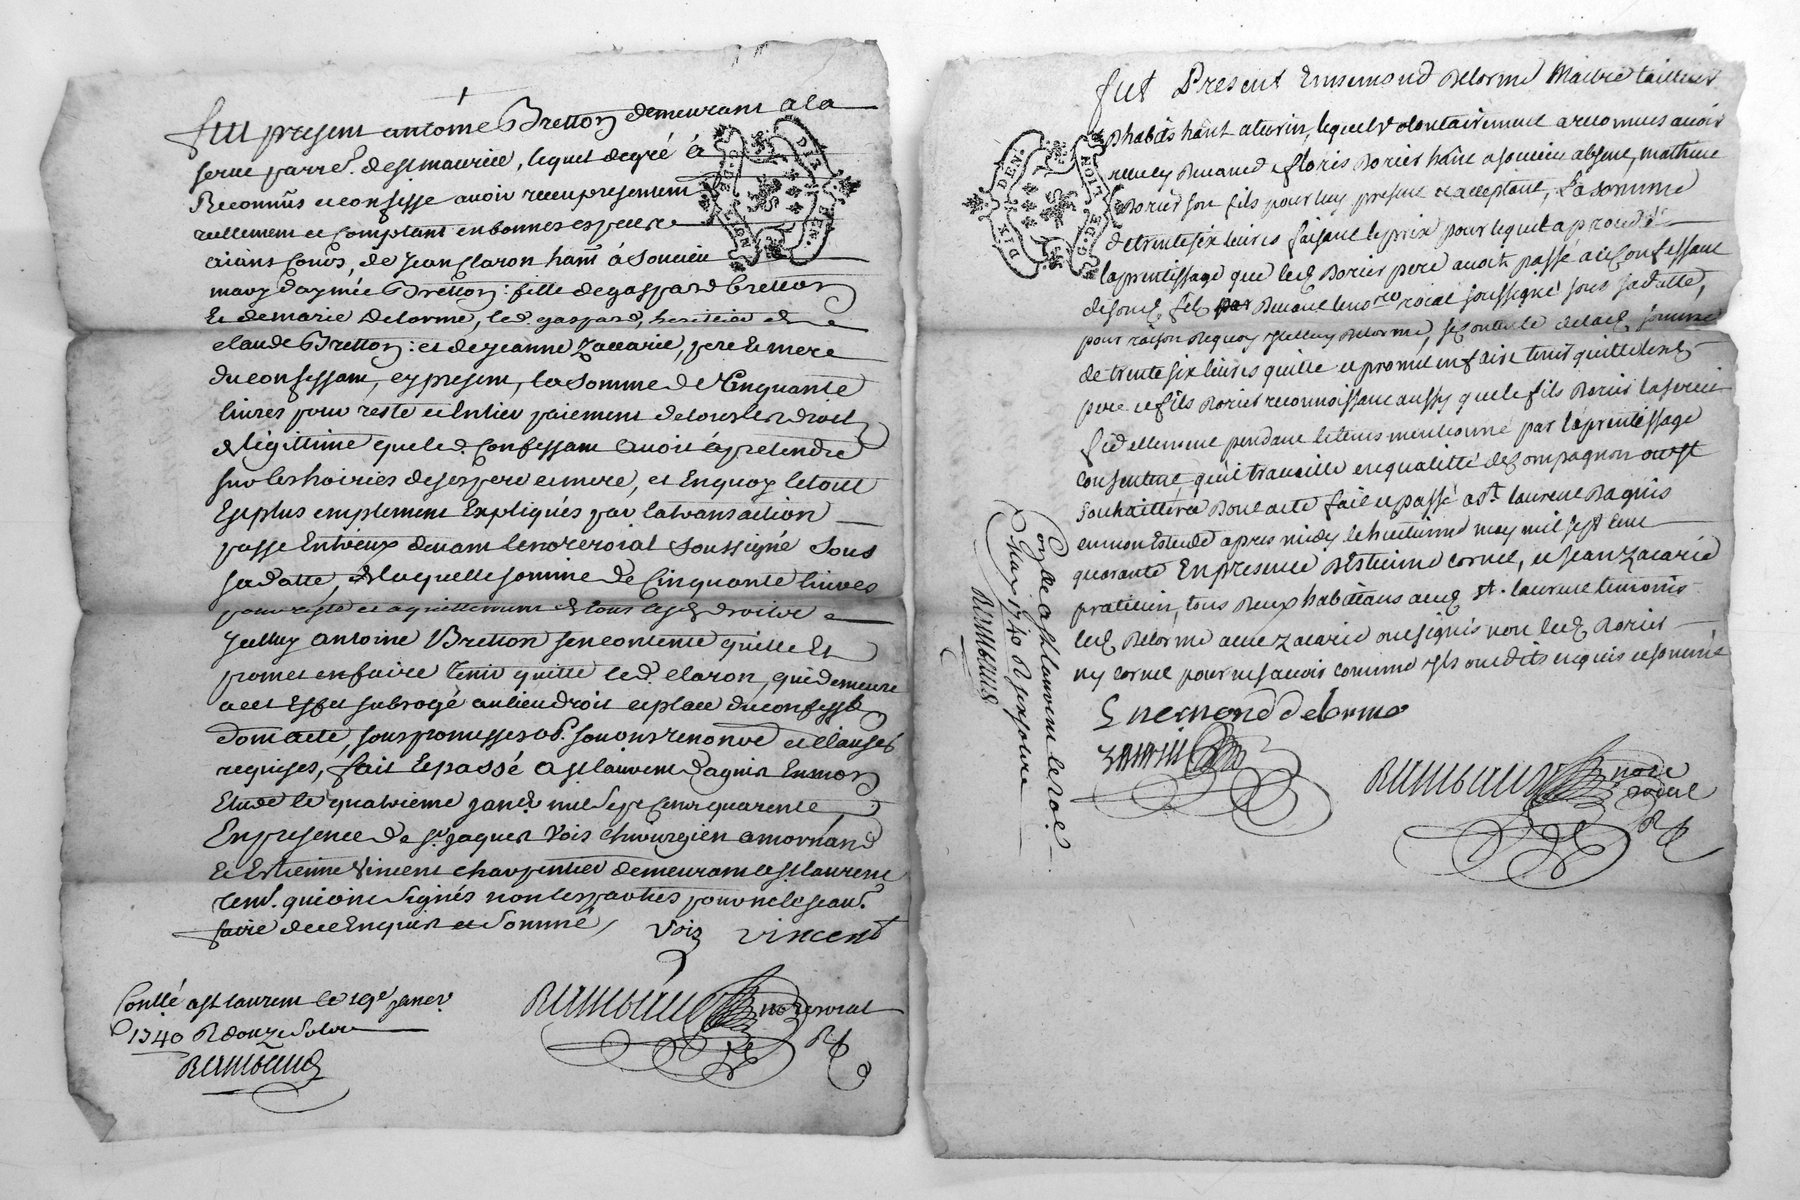 fut present antoine Bretton demeurant a la
serve parr.e de st maurice, lequel de gré à
Reconnus et confesse avoir receu presentement
reellement et comptant en bonnes especes
aiant cours, de jean Claron hant à Soucieu
mary d'aymée Bretton: fille de gaspard bretton
Et de marie Delorme, led. gaspard, heritier de
claude Bretton: et de jeanne Zaccarie, pere Et mere
du confessant, cy present, la somme de Cinquante
livres pour reste et Entier paiement de tous les droits
de legittime que led. Confessant avoit à pretendre
sur les hoiries de ses pere et mere, et En quoy le tout
Est plus emplement Expliqués par la transaction
passé Entreux devant le no.re roial soussigné sous
sa datte, de laquelle somme de Cinquante livres
pour reste et aquittement de tous lesd. droits
jcelluy antoine Bretton sen contente quitte Et
promet en faire tenir quitte led. claron, qui demeure
a cet Effet subrogé au lieu droit et place du confess.t
dont acte, sous promesses ob. soumons renonce et clauses
requises, fait Et passé a st laurent d'agnis En mon
Etude le quatrieme janvr mil Sept Cens quarente,
En presence de sr. jaques Vois chirurgien a mornand
Et Estienne Vincent charpentier demeurant a st laurent
tem. qui ont signés non les parties pour ne le scav.r
faire de ce Enquis et Sommé,
Vois vincent
Conllé a st laurent le 19e janer.
1740 R douze Sols
Rambaud
Rambaud no.re roial
R
fut Present Ennemond delorme Maitre tailleur
d'habits hant a turin, lequel volontairement a reconnus avoir
receu de floris Dorier hant a soucieu absent, mathieu
Dorier son fils pour luy present et acceptant, La somme
de trente six livres faisant le prix pour lequel
laprentissage que led. Dorier pere avoit passé au Confessant
de sond. fils par devant le no.re roial soussigné sous sa datte,
pour raison dequoy jcelluy delorme, se contente de lad. somme
de trente six livres quitte et promet en faire tenir quitte lesd.
pere et fils Dorier reconnoissant aussy que le fils Dorier la servi
fidellement pendant le tems mentionné par l'aprentissage
consentant qu'il travaille en qualitté de compagnon
souhaittera Dont acte fait et passé a st. laurent Dagnis
en mon Estude apres midy le huitieme may mil sept cent
quarante En presence d'Estienne cornet, et jean Zacarie
praticien, tous deux habittans aud. st. laurent temoins
led. delorme avec Zacarie ont signés non led. Dorier
ny cornet pour ne scavoir comme jls ont dits enquis et sommé
Ennemond Delorme
Zacarie
Rambaud no.re roial
R
Conlle a st laurent le
may 1740 R six sols
Rambaud